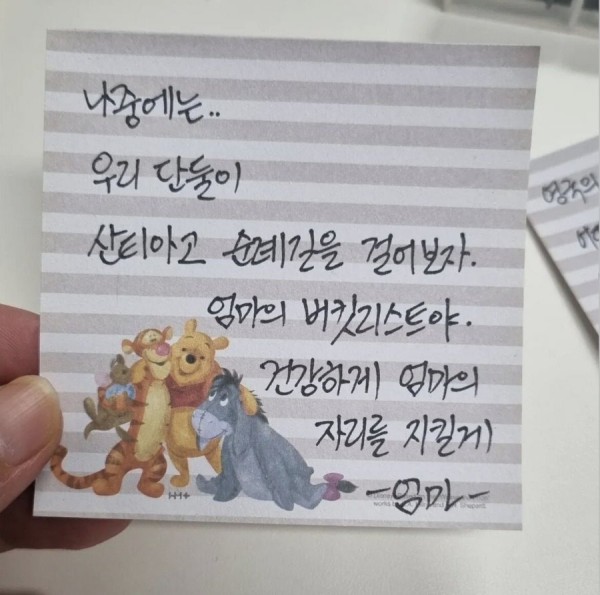 나중에는..
우리 단둘이
산티아고 순례길을 걸어보자.
엄마의 버킷리스트야.
건강하게 엄마의
자리를 지킬게
-엄마-